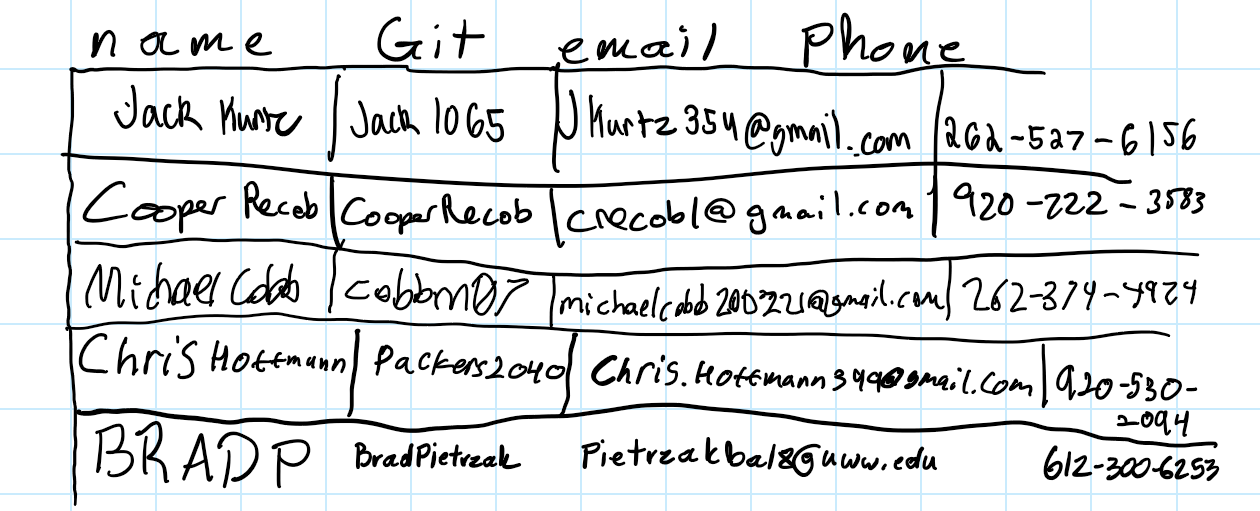 name Git email Phone
Jack Kurtz Jack1065 JKurtz354@gmail.com 262-527-6156
Cooper Recob CooperRecob crecob1@gmail.com 920-222-3583
Michael Cobb cobbm07 michaelcobb200221@gmail.com 262-374-4924
Chris Hoffmann Packers2040 Chris.Hoffmann399@gmail.com 920-530-
2094
BRADP BradPietrzak Pietrzakba18@uww.edu 612-300-6253